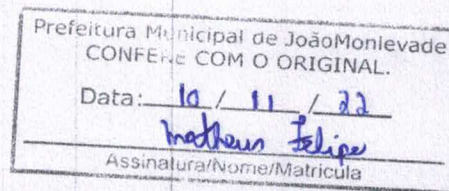 Prefeitura Municipal de JoãoMonlevade
CONFERE COM O ORIGINAL.
Data: 10 / 11 / 22
Matheus Felipe
Assinatura/Nome/Matrícula